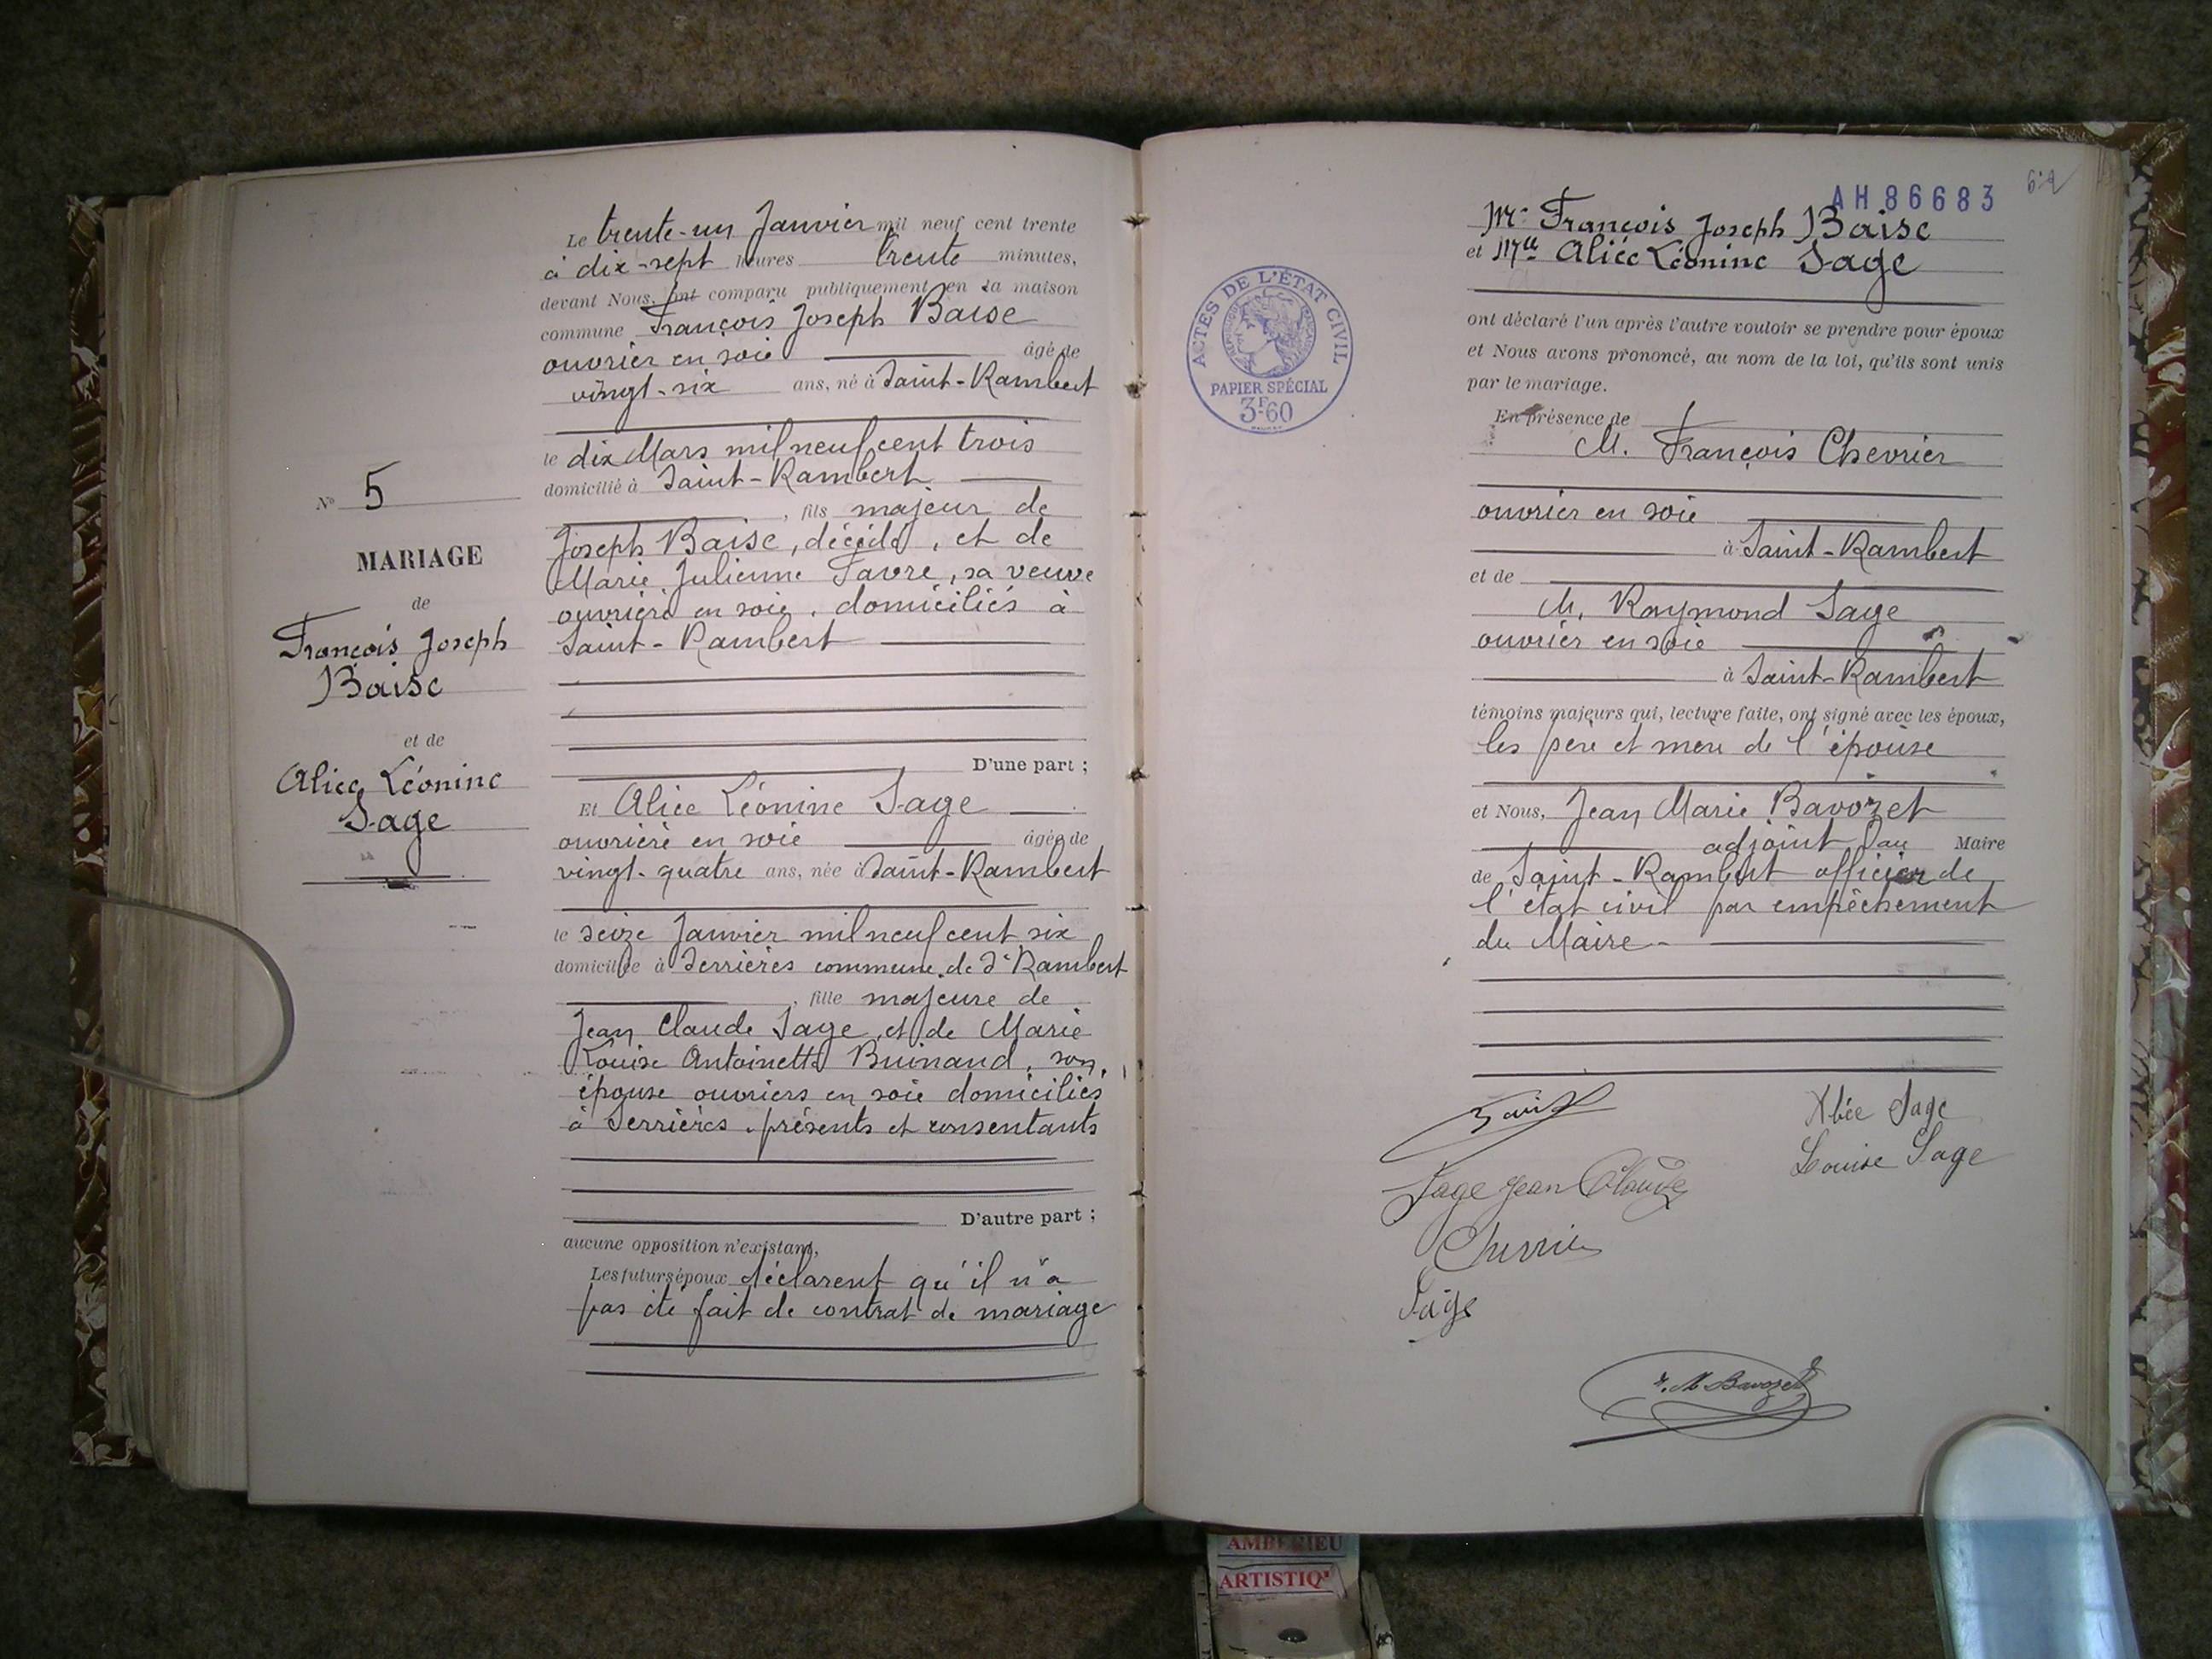 Le trente-un Janvier mil neuf cent trente
à dix-sept heures trente minutes,
devant Nous, ont comparu publiquement en la maison
commune François Joseph Baise
ouvrier en soie âgé de
vingt-six ans, né à Saint-Rambert
le dix Mars mil neuf cent trois
domicilié à Saint-Rambert
, fils majeur de
Joseph Baise, décédé, et de
Marie Julienne Favre, sa veuve
ouvrière en soie, domiciliés à
Saint-Rambert
D'une part ;
Et Alice Léonine Sage
ouvrière en soie âgée de
vingt-quatre ans, née à Saint-Rambert
le seize Janvier mil neuf cent six
domiciliée à Serrières commune de St Rambert
, fille majeure de
Jean Claude Sage, et de Marie
Louise Antoinette Buinand, son
épouse ouvriers en soie domiciliés
à Serrières. présents et consentants
D'autre part ;
aucune opposition n'existant,
Les futurs époux déclarent qu'il n'a
pas été fait de contrat de mariage
No 5
MARIAGE
de
François Joseph
Baise
et de
Alice Léonine
Sage
AH86683
Mr François Joseph Baise
et Mlle Alice Léonine Sage
ont déclaré l'un après l'autre vouloir se prendre pour époux
et Nous avons prononcé, au nom de la loi, qu'ils sont unis
par le mariage.
En présence de
M. François Chevrier
ouvrier en soie
à Saint-Rambert
et de
M. Raymond Sage
ouvrier en soie
à Saint-Rambert
témoins majeurs qui, lecture faite, ont signé avec les époux,
les père et mère de l'épouse
et Nous, Jean Marie Bavozet
adjoint au Maire
de Saint-Rambert officier de
l'état civil par empêchement
du Maire
Alice Sage
Louise Sage
Sage Jean Claude
Chevrier
Sage
J. M. Bavozet
ACTES DE L'ÉTAT CIVIL
RÉPUBLIQUE FRANÇAISE
PAPIER SPÉCIAL
3F60
AMBERIEU
ARTISTIQ